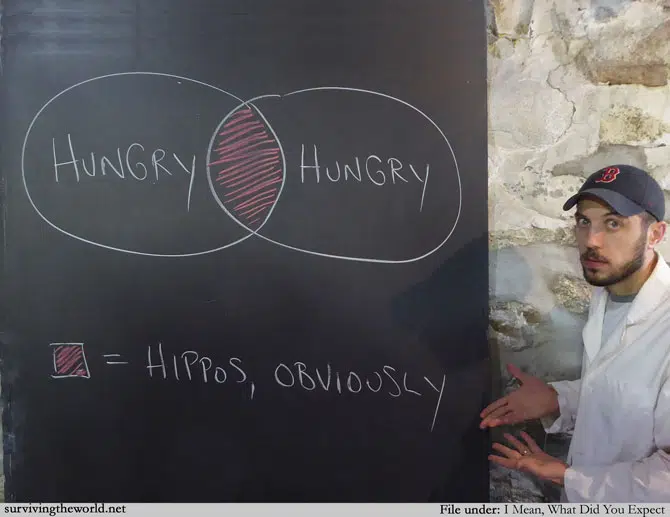 HUNGRY HUNGRY
= HIPPOS, OBVIOUSLY
B
survivingtheworld.net File under: I Mean, What Did You Expect